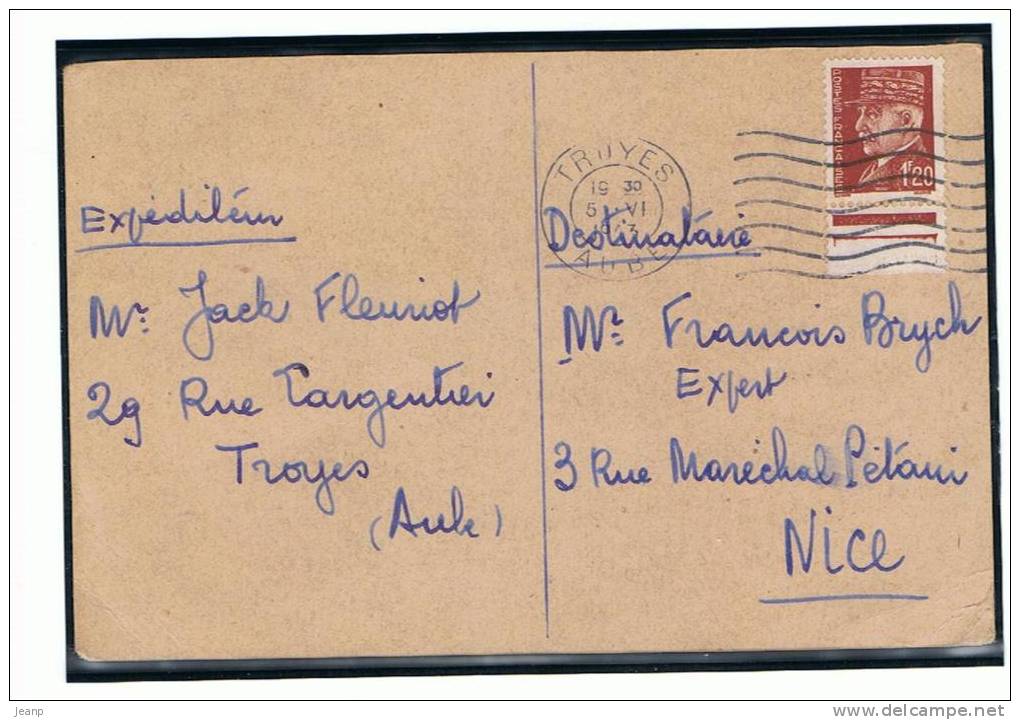 Expéditeur
Mr. Jack Fleuriot
29 Rue Largentier
Troyes
(Aube)
TROYES
19 30
5 VI
1943
AUBE
POSTES FRANCAISES
1F20
Destinataire
Mr. Francois Brych
Expert
3 Rue Maréchal Pétain
NICE
jeanp
delcampe.net